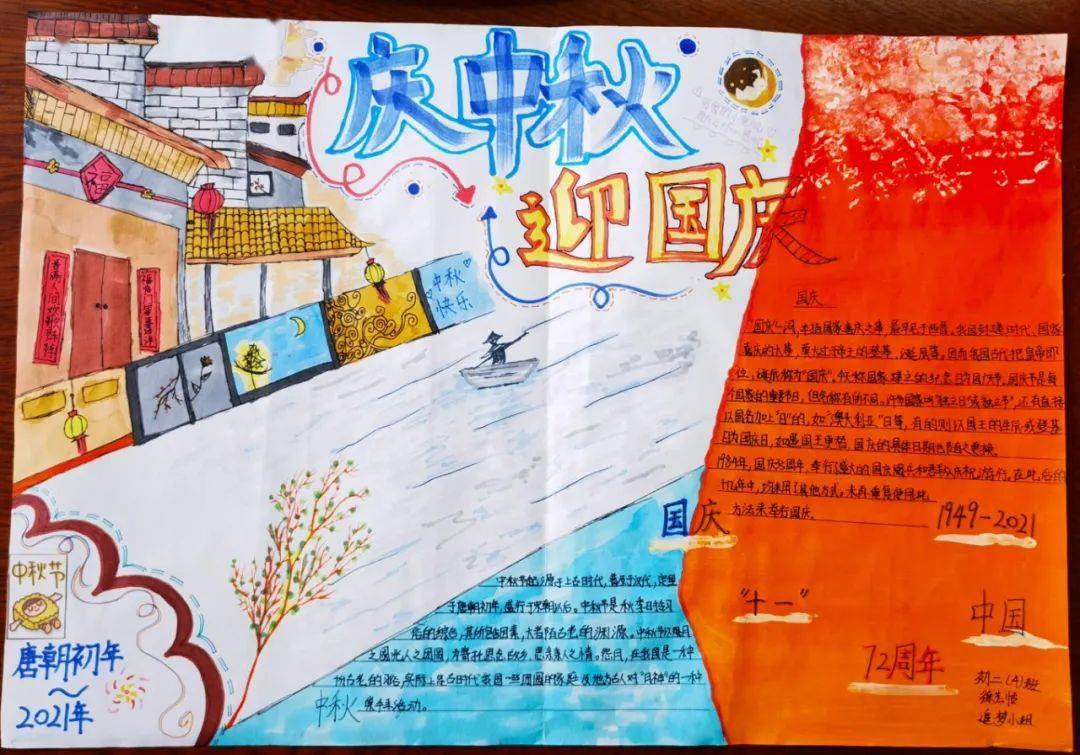 庆中秋
迎国庆
福
中秋
快乐
国庆
"国庆"一词,本指国家喜庆之事,最早见于西晋。我国封建时代、国家
喜庆的大事,莫大过于帝王的登基、诞辰等。因而我国古代把皇帝即
位、诞辰称为"国庆"。今天称国家建立的纪念日为国庆节。国庆节是每
个国家的重要节日,但名称有所不同。许多国家叫"独立日"或"独立节",还有直接
以国名加上"日"的,如"澳大利亚"日等,有的则以国王的生庆或登基
日为国庆日,如遇国王更替,国庆的具体日期也随之更换。
1984年,国庆35周年,举行了盛大的国庆阅兵和群众庆祝游行。在此后的
十几年中,均采用了其他方式。未再重复使用此
方法来举行国庆。
1949-2021
国庆
"十一"
中国
72周年
初二(4)班
追梦小组
中秋节起源于上古时代,普及于汉代,定型
于唐朝初年,盛行于宋朝以后。中秋节是秋季时令习
俗的综合,其所包含因素,大都有古老的渊源。中秋节以月
之圆兆人之团圆,为寄托思念故乡,思念亲人之情。
中秋
中秋节
唐朝初年
~
2021年